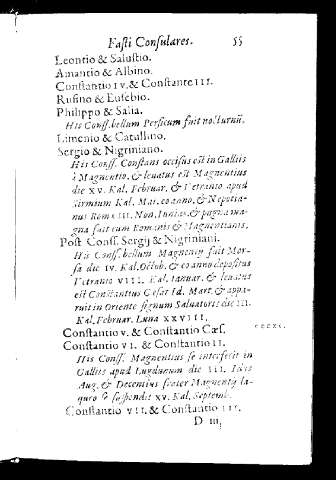 Fasti Consulares. 55
Leontio & Salustio.
Amantio & Albino.
Constantio IV. & Constante III.
Rufino & Eusebio.
Philippo & Salia.
His Conss. bellum Persicum fuit nocturnū.
Limenio & Catullino.
Sergio & Nigriniano.
His Conss. Constans occisus est in Galliis
à Magnentio, & levatus est Magnentius
die XV. Kal. Februar. & Vetranio apud
Sirmium Kal. Mar. eo anno, & Nepotia-
nus Romæ III. Non. Iunias, & pugna ma-
gna fuit cum Romanis & Magnentianis.
Post Conss. Sergij & Nigriniani.
His Conss. bellum Magnentij fuit Mor-
sa die IV. Kal. Octob. & eo anno depositus
Vetranio VIII. Kal. Ianuar. & levatus
est Constantius Cæsar Id. Mart. & appa-
ruit in Oriente signum Salvatoris die III.
Kal. Februar. Luna XXVIII.
Constantio V. & Constantio Cæs.
Constantio VI. & Constantio II.
His Conss. Magnentius se interfecit in
Galliis apud Lugdunum die III. Idus
Aug. & Decentius frater Magnentij la-
queo se suspendit XV. Kal. Septemb.
Constantio VII. & Constantio III.
D iiij